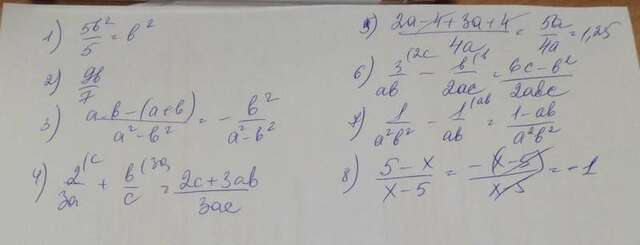 1) 5b²/5 = b²
2) 9b/7
3) (a·b - (a+b))/(a² - b²) = - b²/(a² - b²)
4) 2/3a (c + b/c (3a = (2c + 3ab)/3ac
5) (2a - 4 + 3a + 4)/4a = 5a/4a = 1,25
6) 3/ab (2c - b/2ac (b = (6c - b²)/2abc
7) 1/a²b² - 1/ab (ab = (1 - ab)/a²b²
8) (5 - x)/(x - 5) = -(x - 5)/(x - 5) = -1